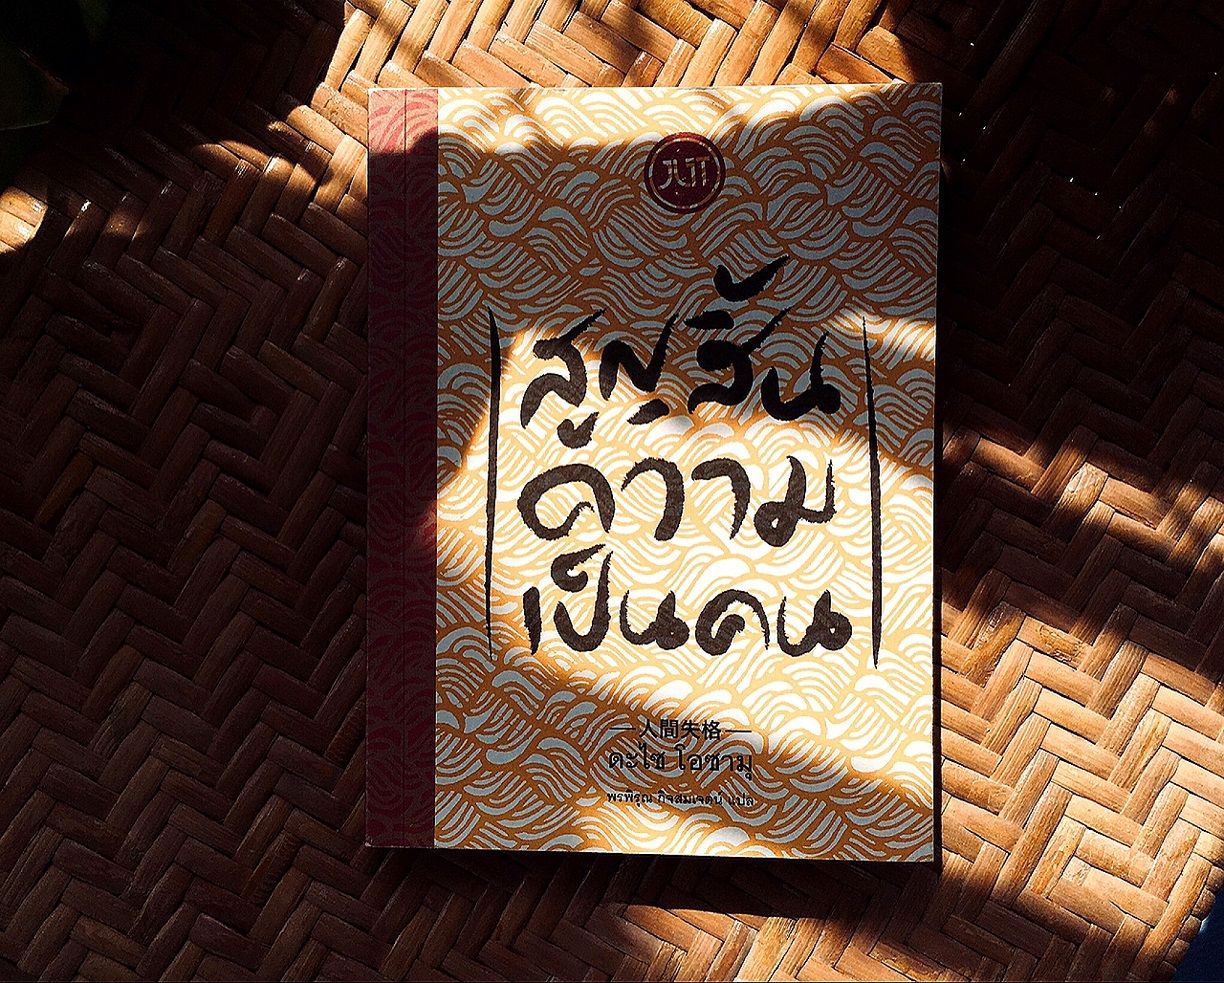 JLIT
สูญสิ้น
ความ
เป็นคน
人間失格
ดะไซ โอซามุ
พรพิรุณ กิจสมเจตน์ แปล